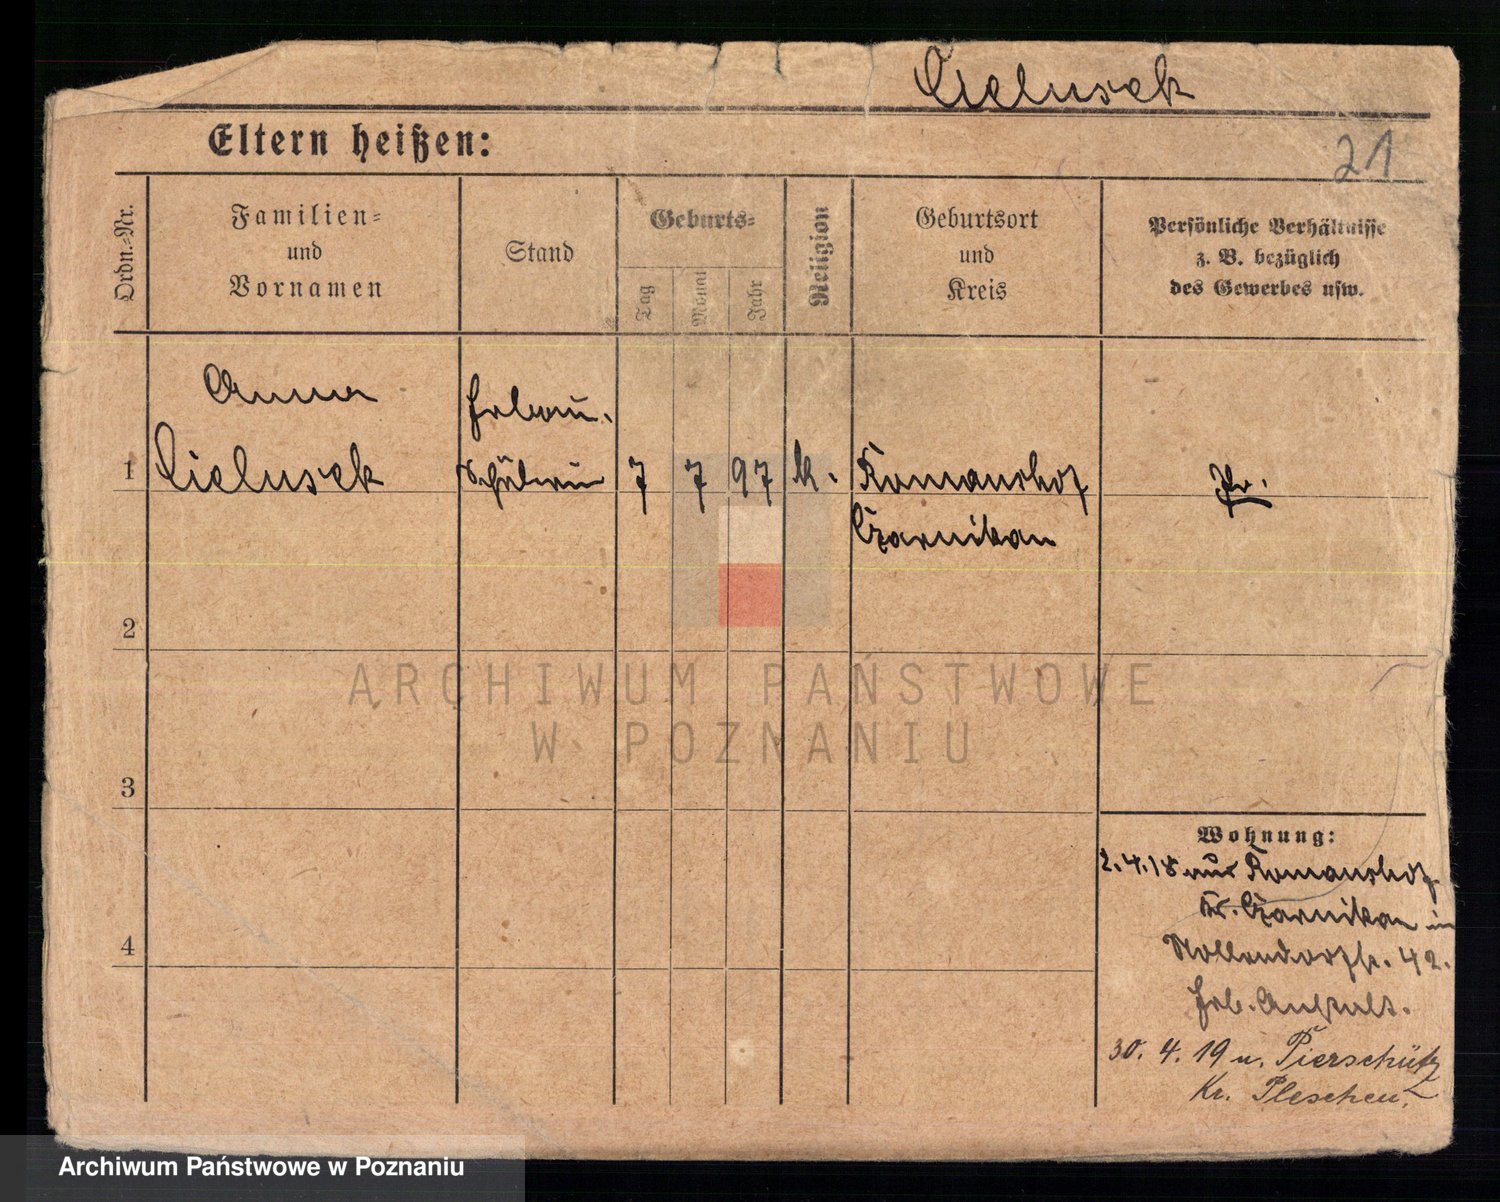 Cielusek
Eltern heißen:
21
Ordn.-Nr.
Familien-
und
Vornamen
Stand
Geburts-
Tag
Monat
Jahr
Religion
Geburtsort
und
Kreis
Persönliche Verhältnisse
z. B. bezüglich
des Gewerbes usw.
Anna
Cielusek
Hebam.
Schülerin
1
7
7
97
k.
Romanshof
Czarnikau
Pr.
2
3
4
Wohnung:
2.4.18 aus Romanshof
Kr. Czarnikau in
Nollendorfstr. 42.
Heb. Anstalt.
30. 4. 19 n. Pierschütz
Kr. Pleschen.
ARCHIWUM PAŃSTWOWE
W POZNANIU
Archiwum Państwowe w Poznaniu